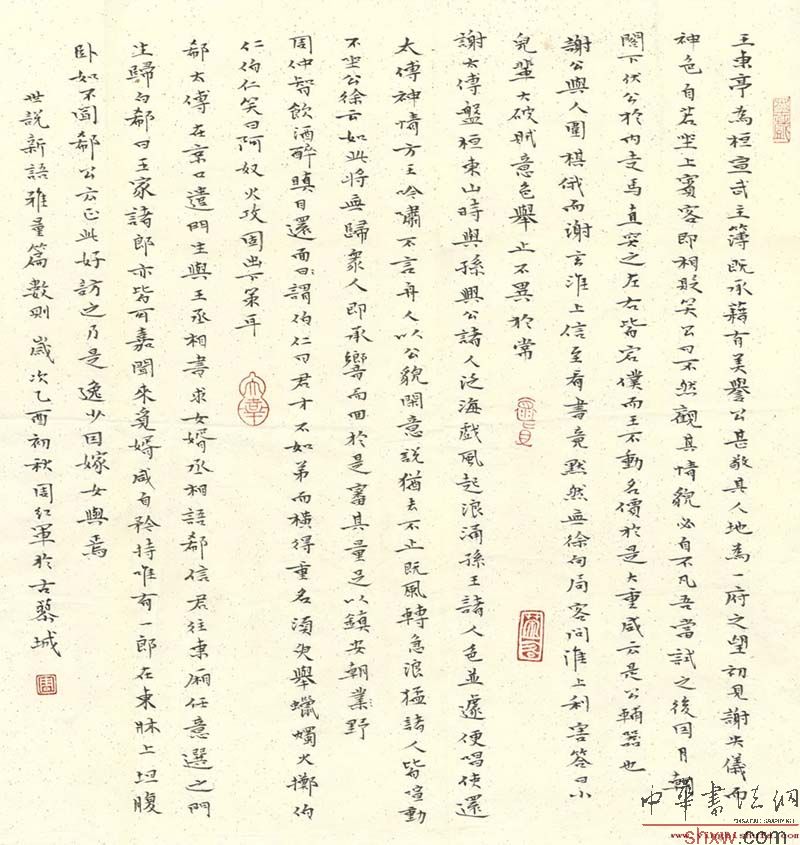 王東亭為桓宣武主簿既承藉有美譽公甚敬其人地為一府之望初見謝失儀而
神色自若坐上賓客即相貶笑公曰不然觀其情貌必自不凡吾當試之後因月朝
閤下伏公於內走馬直突之左右皆宕僕而王不動名價於是大重咸云是公輔器也
謝公與人圍棋俄而謝玄淮上信至看書竟默然無徐向局客問淮上利害答曰小
兒輩大破賊意色舉止不異於常
謝太傅盤桓東山時與孫興公諸人泛海戲風起浪涌孫王諸人色並遽便唱使還
太傅神情方王吟嘯不言舟人以公貌閑意說猶去不止既風轉急浪猛諸人皆喧動
不坐公徐云如此將無歸眾人即承響而回於是審其量足以鎮安朝業野
周仲智飲酒醉瞋目還面曰謂伯仁曰君才不如弟而橫得重名須臾舉蠟燭火擲伯
仁伯仁笑曰阿奴火攻固出下策耳
郗太傅在京口遣門生與王丞相書求女婿丞相語郗信君往東廂任意選之門
生歸白郗曰王家諸郎亦皆可嘉聞來覓婿咸自矜持唯有一郎在東牀上坦腹
臥如不聞郗公云正此好訪之乃是逸少因嫁女與焉
世說新語雅量篇數則歲次乙酉初秋周紅軍於古蔡城
中華書法網
shxw.com